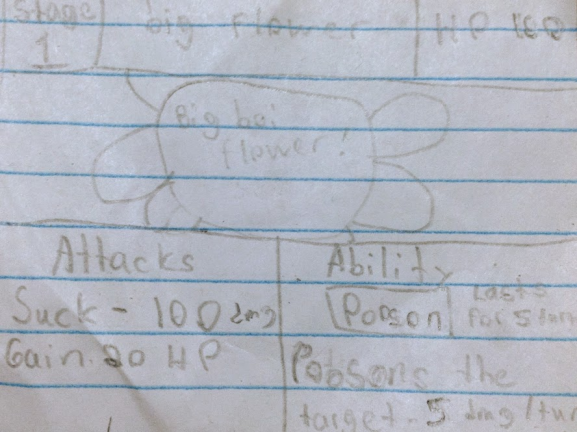 Stage
1
Big Flower
HP 160
Big boi
flower!
Attacks
Suck - 100 dmg
Gain 20 HP
Ability
Poison
Lasts
for 5 turn
Poisons the
target. 5 dmg/tur